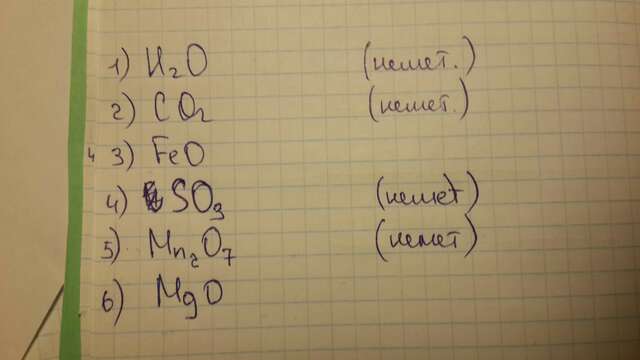 1) H₂O (немет.)
2) CO₂ (немет.)
3) FeO
4) SO₃ (немет)
5) Mn₂O₇ (немет)
6) MgO